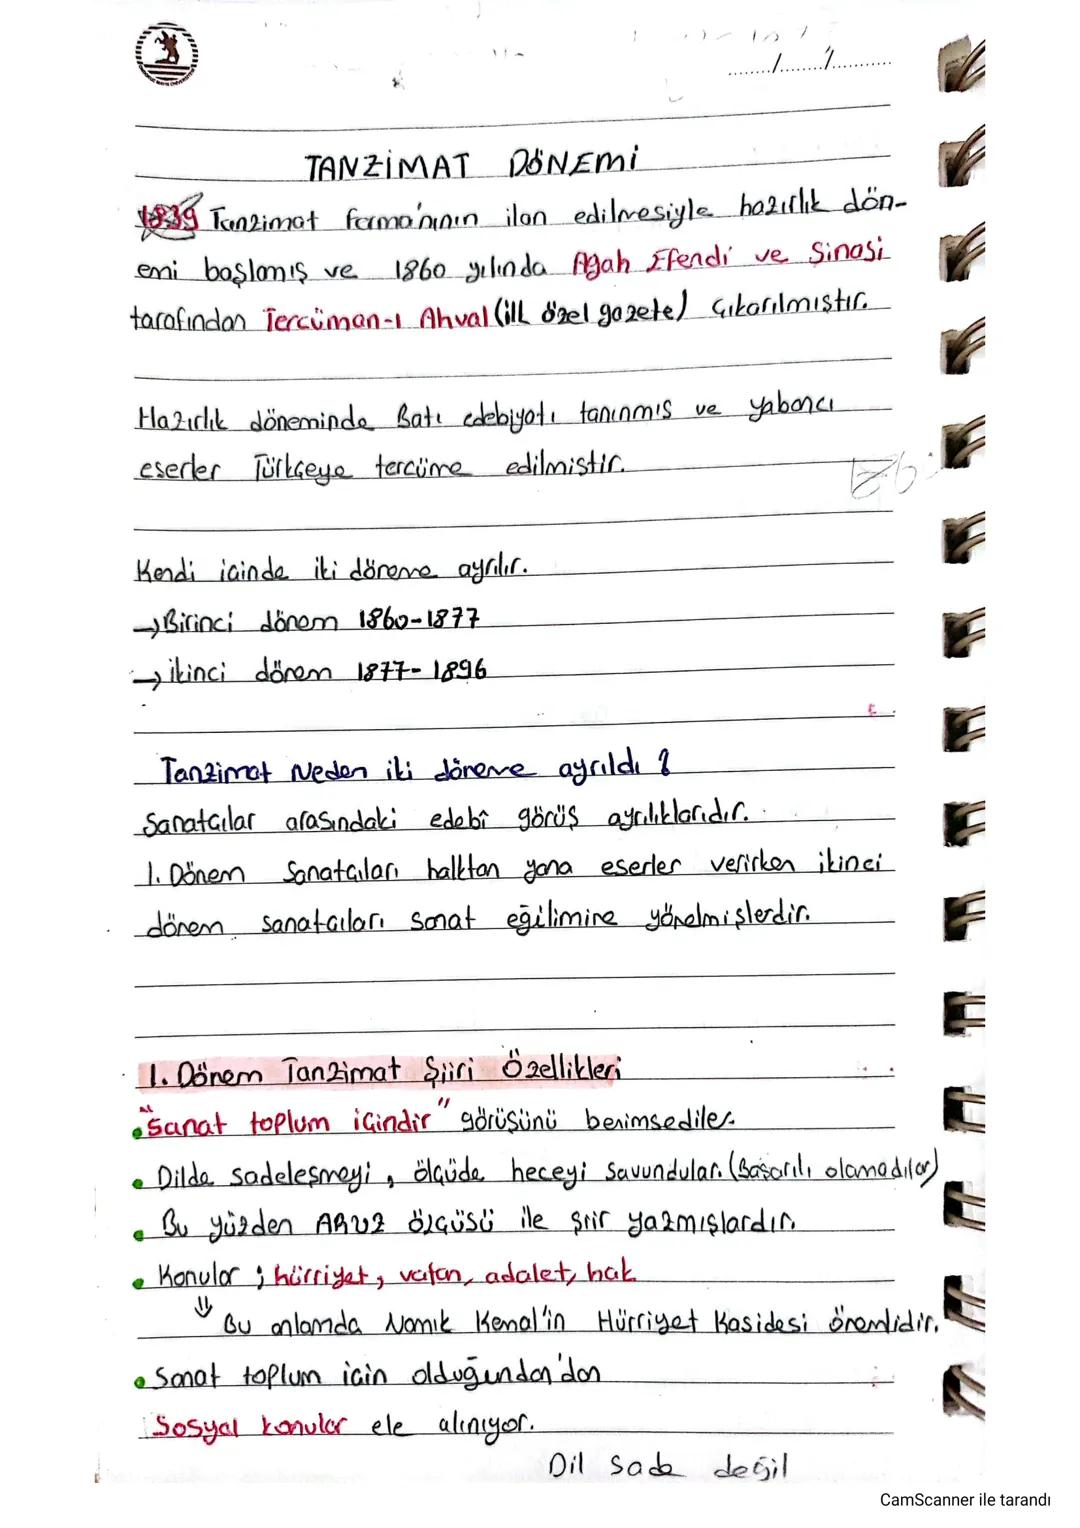 ......../......../...........
TANZİMAT DÖNEMİ
1839 Tanzimat ferma'nının ilan edilmesiyle hazırlık dön-
emi başlamış ve 1860 yılında Agah Efendi ve Şinasi
tarafından Tercüman-ı Ahval (ilk özel gazete) çıkarılmıştır.
Hazırlık döneminde Batı edebiyatı tanınmış ve yabancı
eserler Türkçeye tercüme edilmiştir.
Kendi içinde iki döneme ayrılır.
→Birinci dönem 1860-1877
→ikinci dönem 1877-1896
Tanzimat Neden iki döneme ayrıldı ?
Sanatçılar arasındaki edebî görüş ayrılıklarıdır.
1. Dönem Sanatçıları halktan yana eserler verirken ikinci
dönem sanatçıları sanat eğilimine yönelmişlerdir.
1. Dönem Tanzimat Şiiri Özellikleri
• "Sanat toplum içindir" görüşünü benimsediler.
• Dilde sadeleşmeyi, ölçüde heceyi savundular. (Başarılı olamadılar)
• Bu yüzden ARUZ ölçüsü ile şiir yazmışlardır.
• Konular ; hürriyet, vatan, adalet, hak
⇓ Bu anlamda Namık Kemal'in Hürriyet Kasidesi önemlidir.
• Sanat toplum için olduğundan'dan
Sosyal konular ele alınıyor.
Dil sade değil
CamScanner ile tarandı